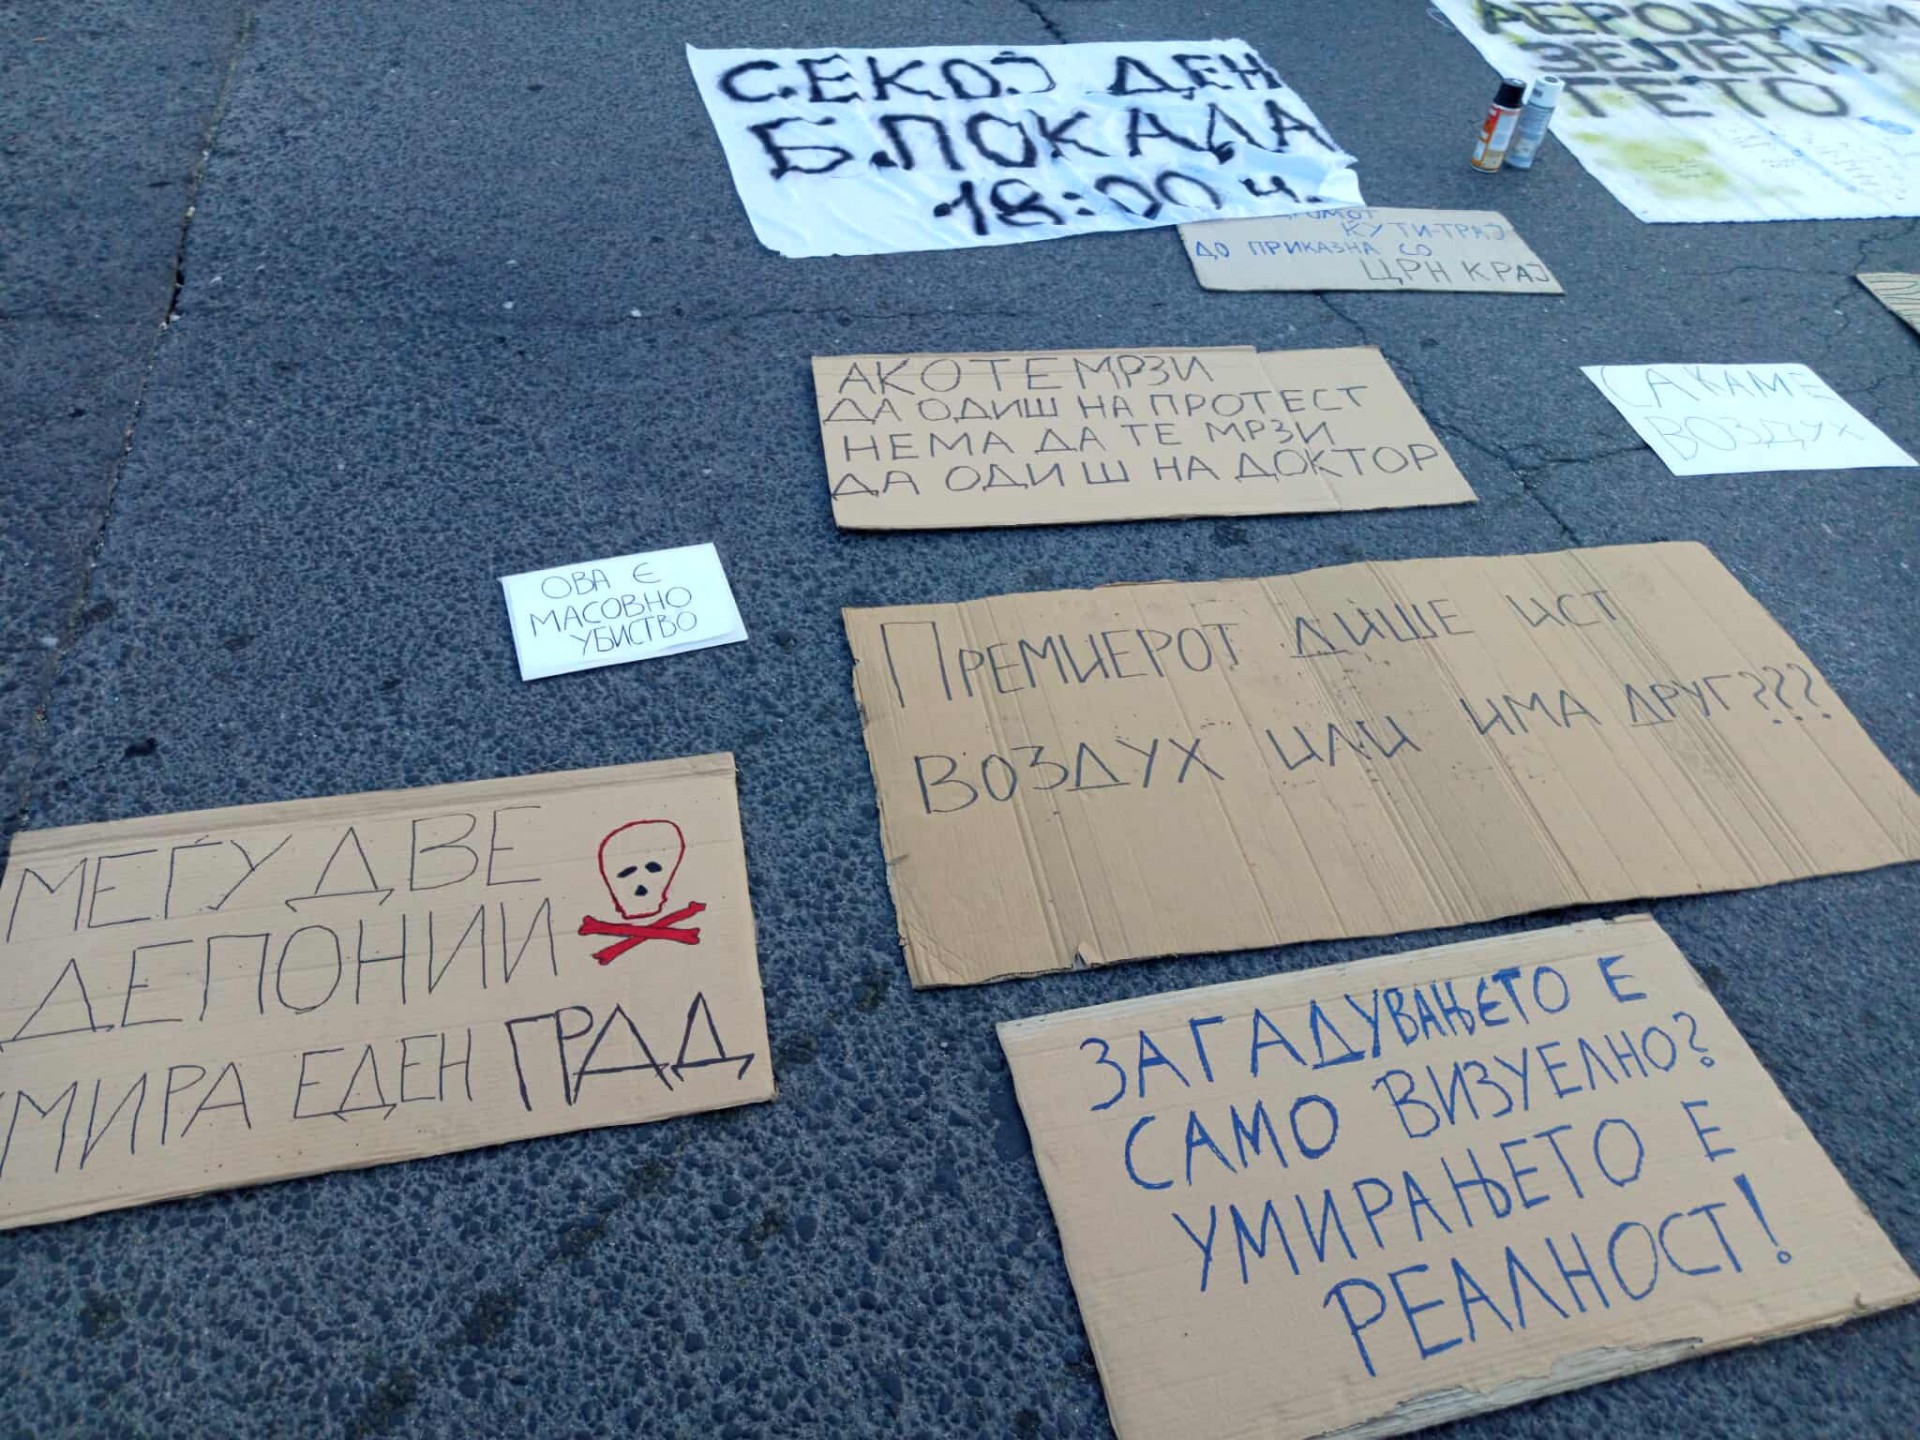 СЕКОЈ ДЕН
БЛОКАДА
18:00 ч.
АЕРОДРОМ
ЗЕЛЕНО
ГЕТО
КУТИ-ТРАЈ
ДО ПРИКАЗНА СО
ЦРН КРАЈ
АКО ТЕ МРЗИ
ДА ОДИШ НА ПРОТЕСТ
НЕМА ДА ТЕ МРЗИ
ДА ОДИШ НА ДОКТОР
САКАМЕ
ВОЗДУХ
ОВА Е
МАСОВНО
УБИСТВО
ПРЕМИЕРОТ ДИШЕ ИСТ
ВОЗДУХ ИЛИ ИМА ДРУГ???
МЕЃУ ДВЕ
ДЕПОНИИ
УМИРА ЕДЕН ГРАД
ЗАГАДУВАЊЕТО Е
САМО ВИЗУЕЛНО?
УМИРАЊЕТО Е
РЕАЛНОСТ!